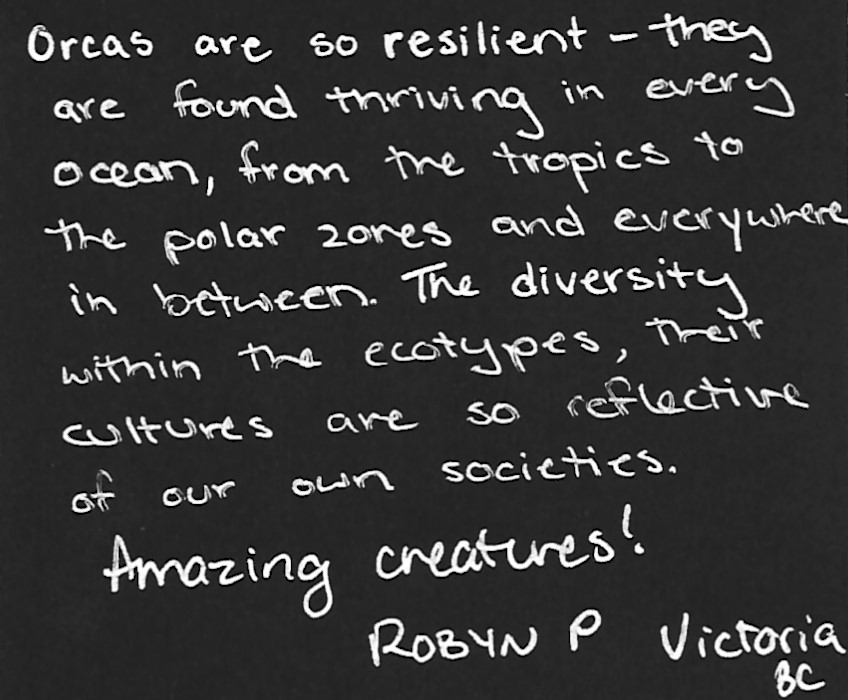 Orcas are so resilient - they
are found thriving in every
ocean, from the tropics to
the polar zones and everywhere
in between. The diversity
within the ecotypes, their
cultures are so reflective
of our own societies.
Amazing creatures!
ROBYN P Victoria
BC